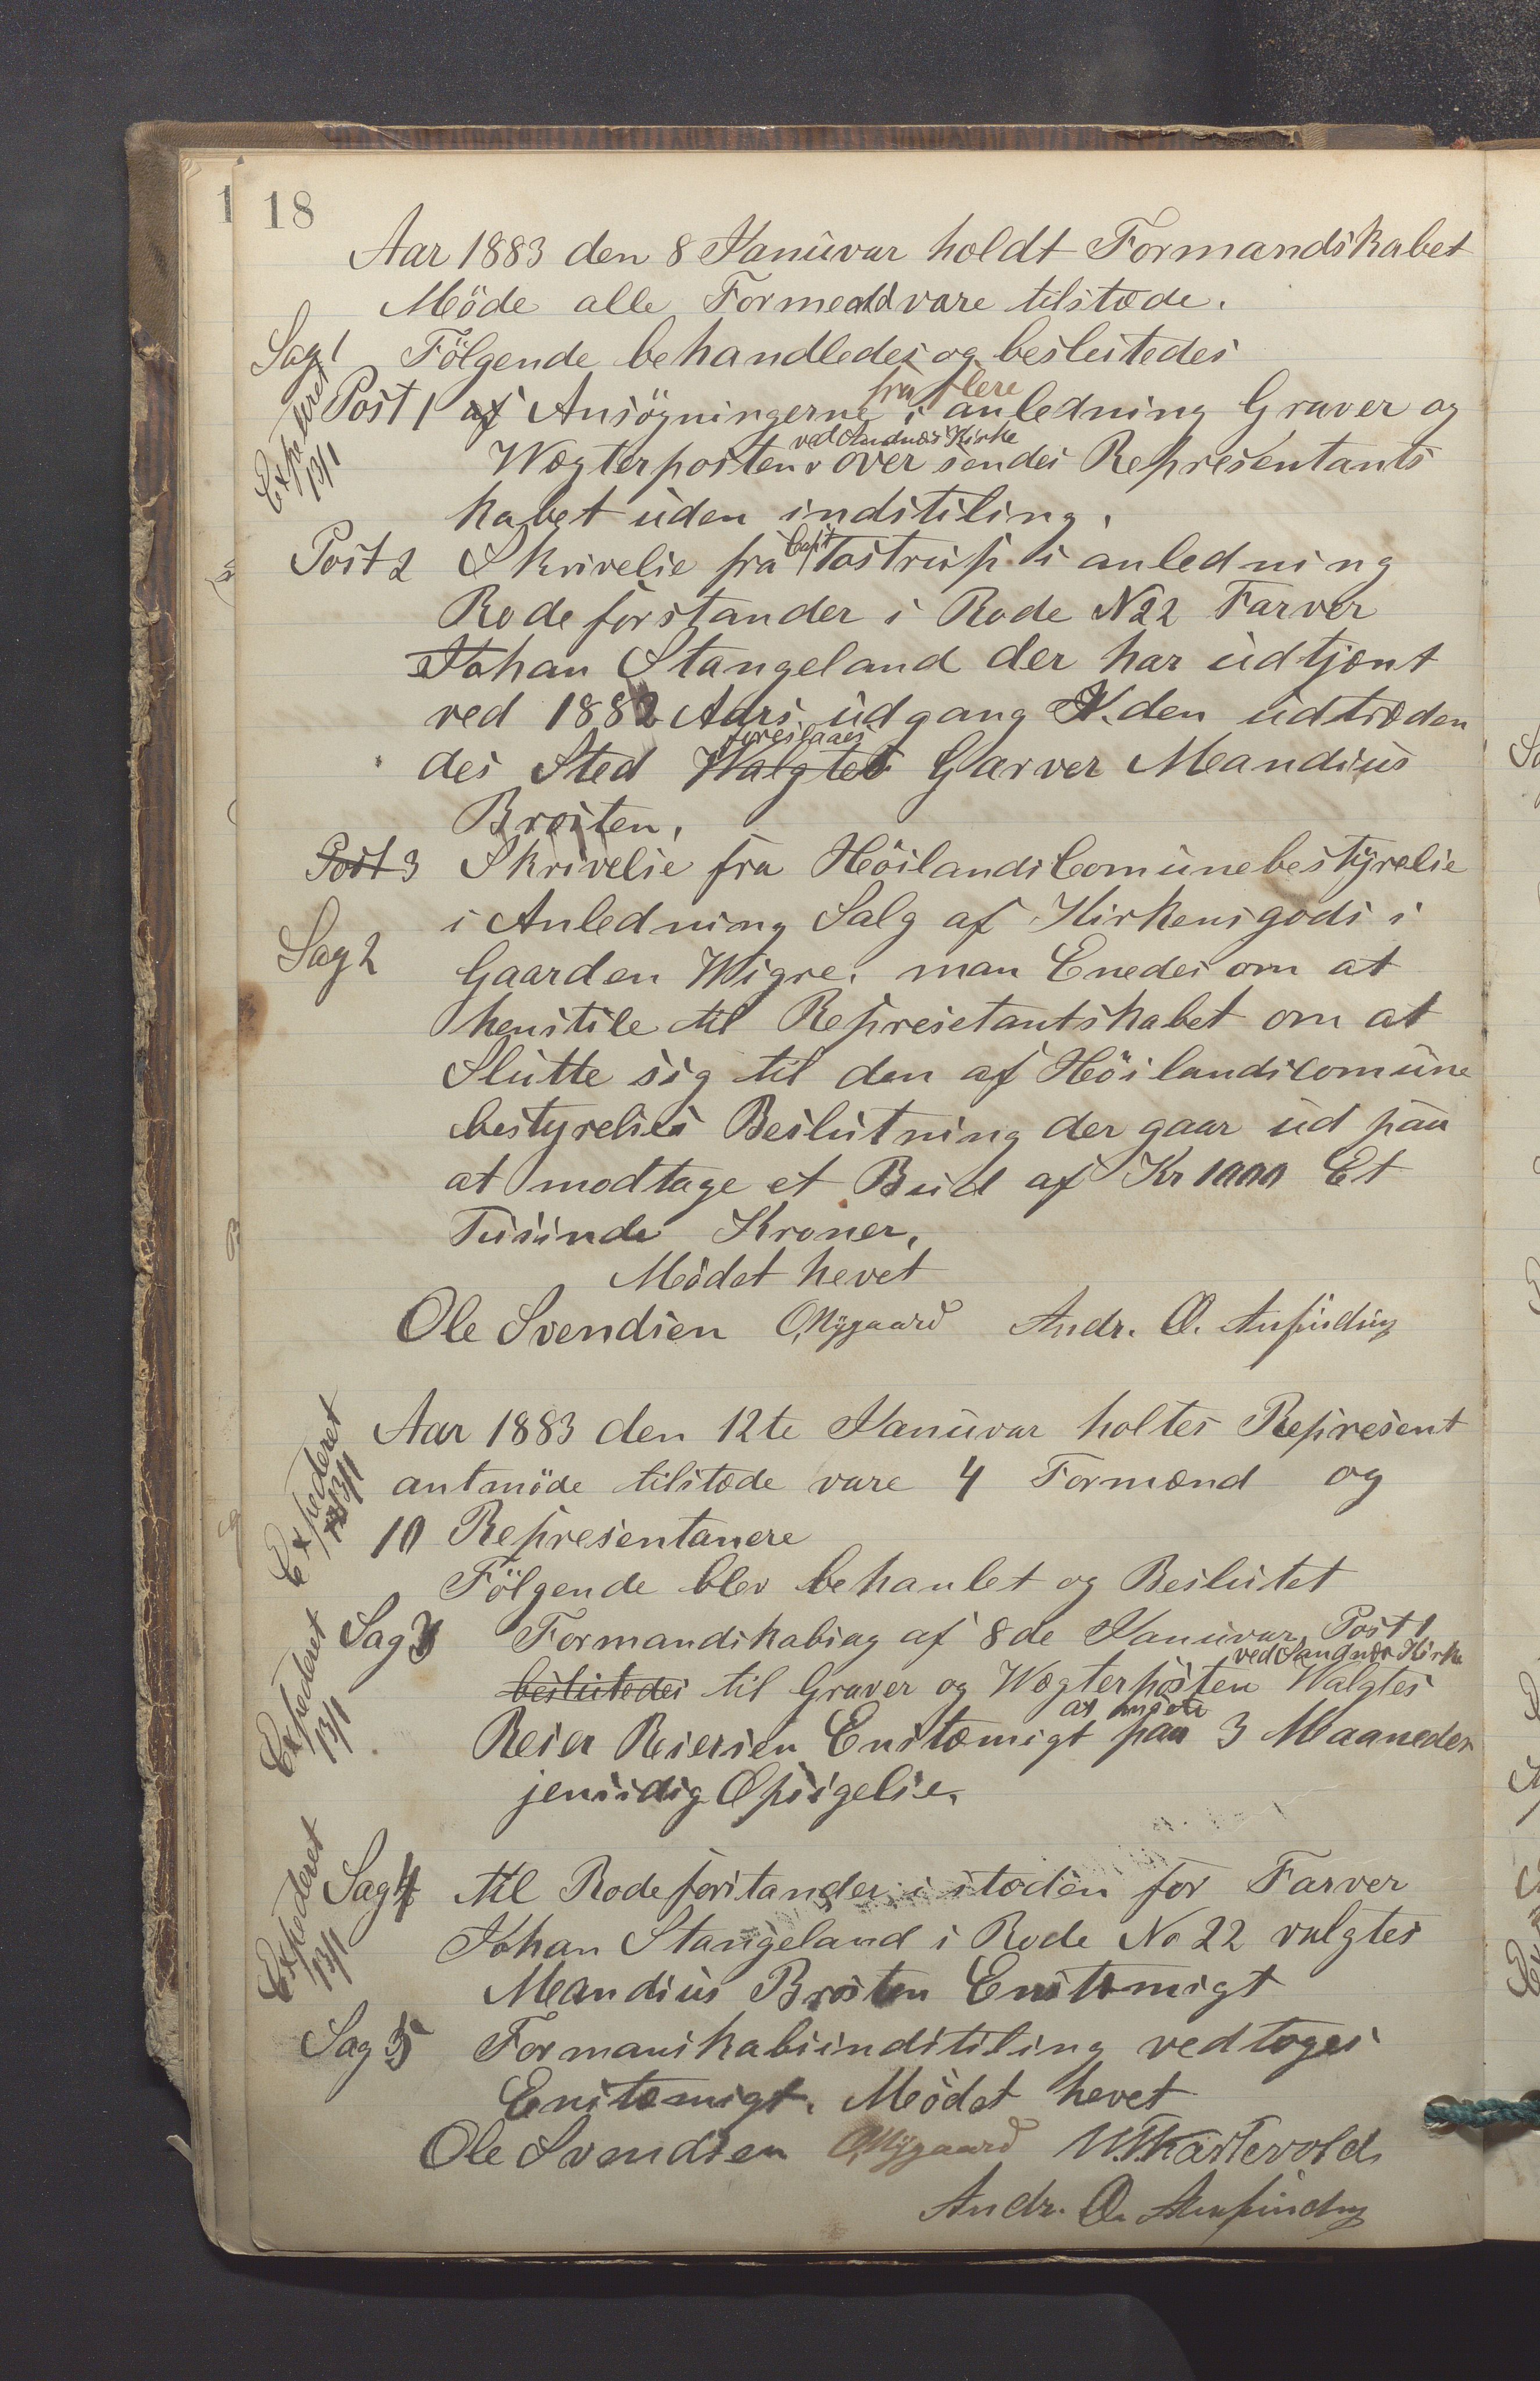 18
Aar 1883 den 8 Januvar holdt Formandskabet
Möde alle Formend vare tilstæde.
Sag 1 Fölgende behandledes og besluttedes
Expederet 13/1
Post 1 af Ansögningerne fra flere i anledning Graver og
Wægterposten ved Sandnæs Kirke over sendes Represetants
kabet uden indstiling.
Post 2 Skrivelse fra Capt Tostrup i anledning
Rode forstander i Rode N 22 Farver
Johan Stangeland der har udtjent
ved 1882 Aars udgang I den udtræden
des Sted Walgtes foreslaaes Garver Meandius
Brosten.
Post 3 Skrivelse fra Höilands Comunebestyrelse
i Anledning Salg af Kirkens gods i
Sag 2 Gaarden Wigre. man Enedes om at
henstile til Represetantskabet om at
Slutte sig til den af Höilandscomune
bestyrelses Beslutning der gaar ud paa
at modtage et Bud af Kr 1000 Et
Tusinde Kroner.
Mödet hevet
Ole Svendsen O. Nygaard Andr. O. Anfindsen
Expederet 13/1
Aar 1883 den 12te Januvar holtes Represent
antmöde tilstæde vare 4 Formænd og
10 Representanere
Fölgende blev behanlet og Beslutet
Expederet 13/1
Sag 3 Formandskabsag af 8de Januvar Post 1
besluttedes til Graver og Wægterposten ved Sandnæs Kirke Walgtes
Reier Reiersen Enstæmigt at ansætte paa 3 Maaneder
jensidig Opsigelse.
Expederet 13/1
Sag 4 til Rodeforstander i stæden for Farver
Johan Stangeland i Rode No 22 valgtes
Meandius Brosten Enstemigt
Sag 5 Formanskabsindstiling vedtoges
Enstemigt. Mödet hevet
Ole Svendsen O. Nygaard Kartevold
Andr. O. Anfindsen